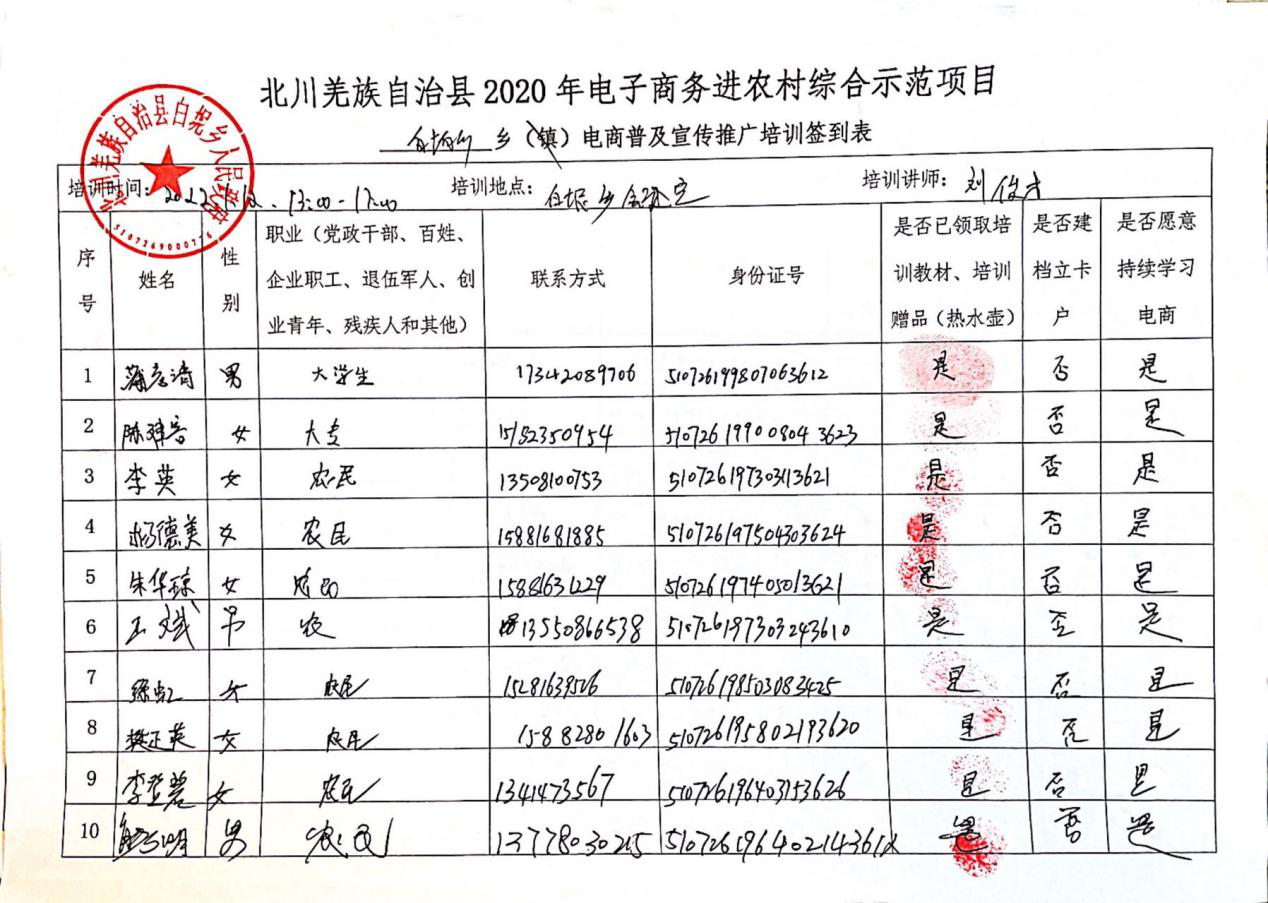 北川羌族自治县2020年电子商务进农村综合示范项目
乡（镇）电商普及宣传推广培训签到表
北川羌族自治县白坭乡人民政府
5107269000776
培训时间： 13:00-17:00 培训地点：白坭乡会议室 培训讲师：刘俊才
序号 姓名 性别 职业（党政干部、百姓、企业职工、退伍军人、创业青年、残疾人和其他） 联系方式 身份证号 是否已领取培训教材、培训赠品（热水壶） 是否建档立卡户 是否愿意持续学习电商
1 男 大学生 17342089706 510726199807063612 是 否 是
2 女 大专 15182350954 510726199008043623 是 否 是
3 李英 女 农民 13508100753 510726197303113621 是 否 是
4 杨德美 女 农民 15881681885 510726197504303624 是 否 是
5 朱华琼 女 农民 15881631229 510726197405013621 是 否 是
6 王斌 男 农 13550866538 510726197303243610 是 否 是
7 徐虹 女 农民 15281639526 510726198503083425 是 否 是
8 樊正英 女 农民 15882801603 510726195802193620 是 否 是
9 女 农民 1341473567 510726196403153626 是 否 是
10 男 农民 13778030215 是 否 是